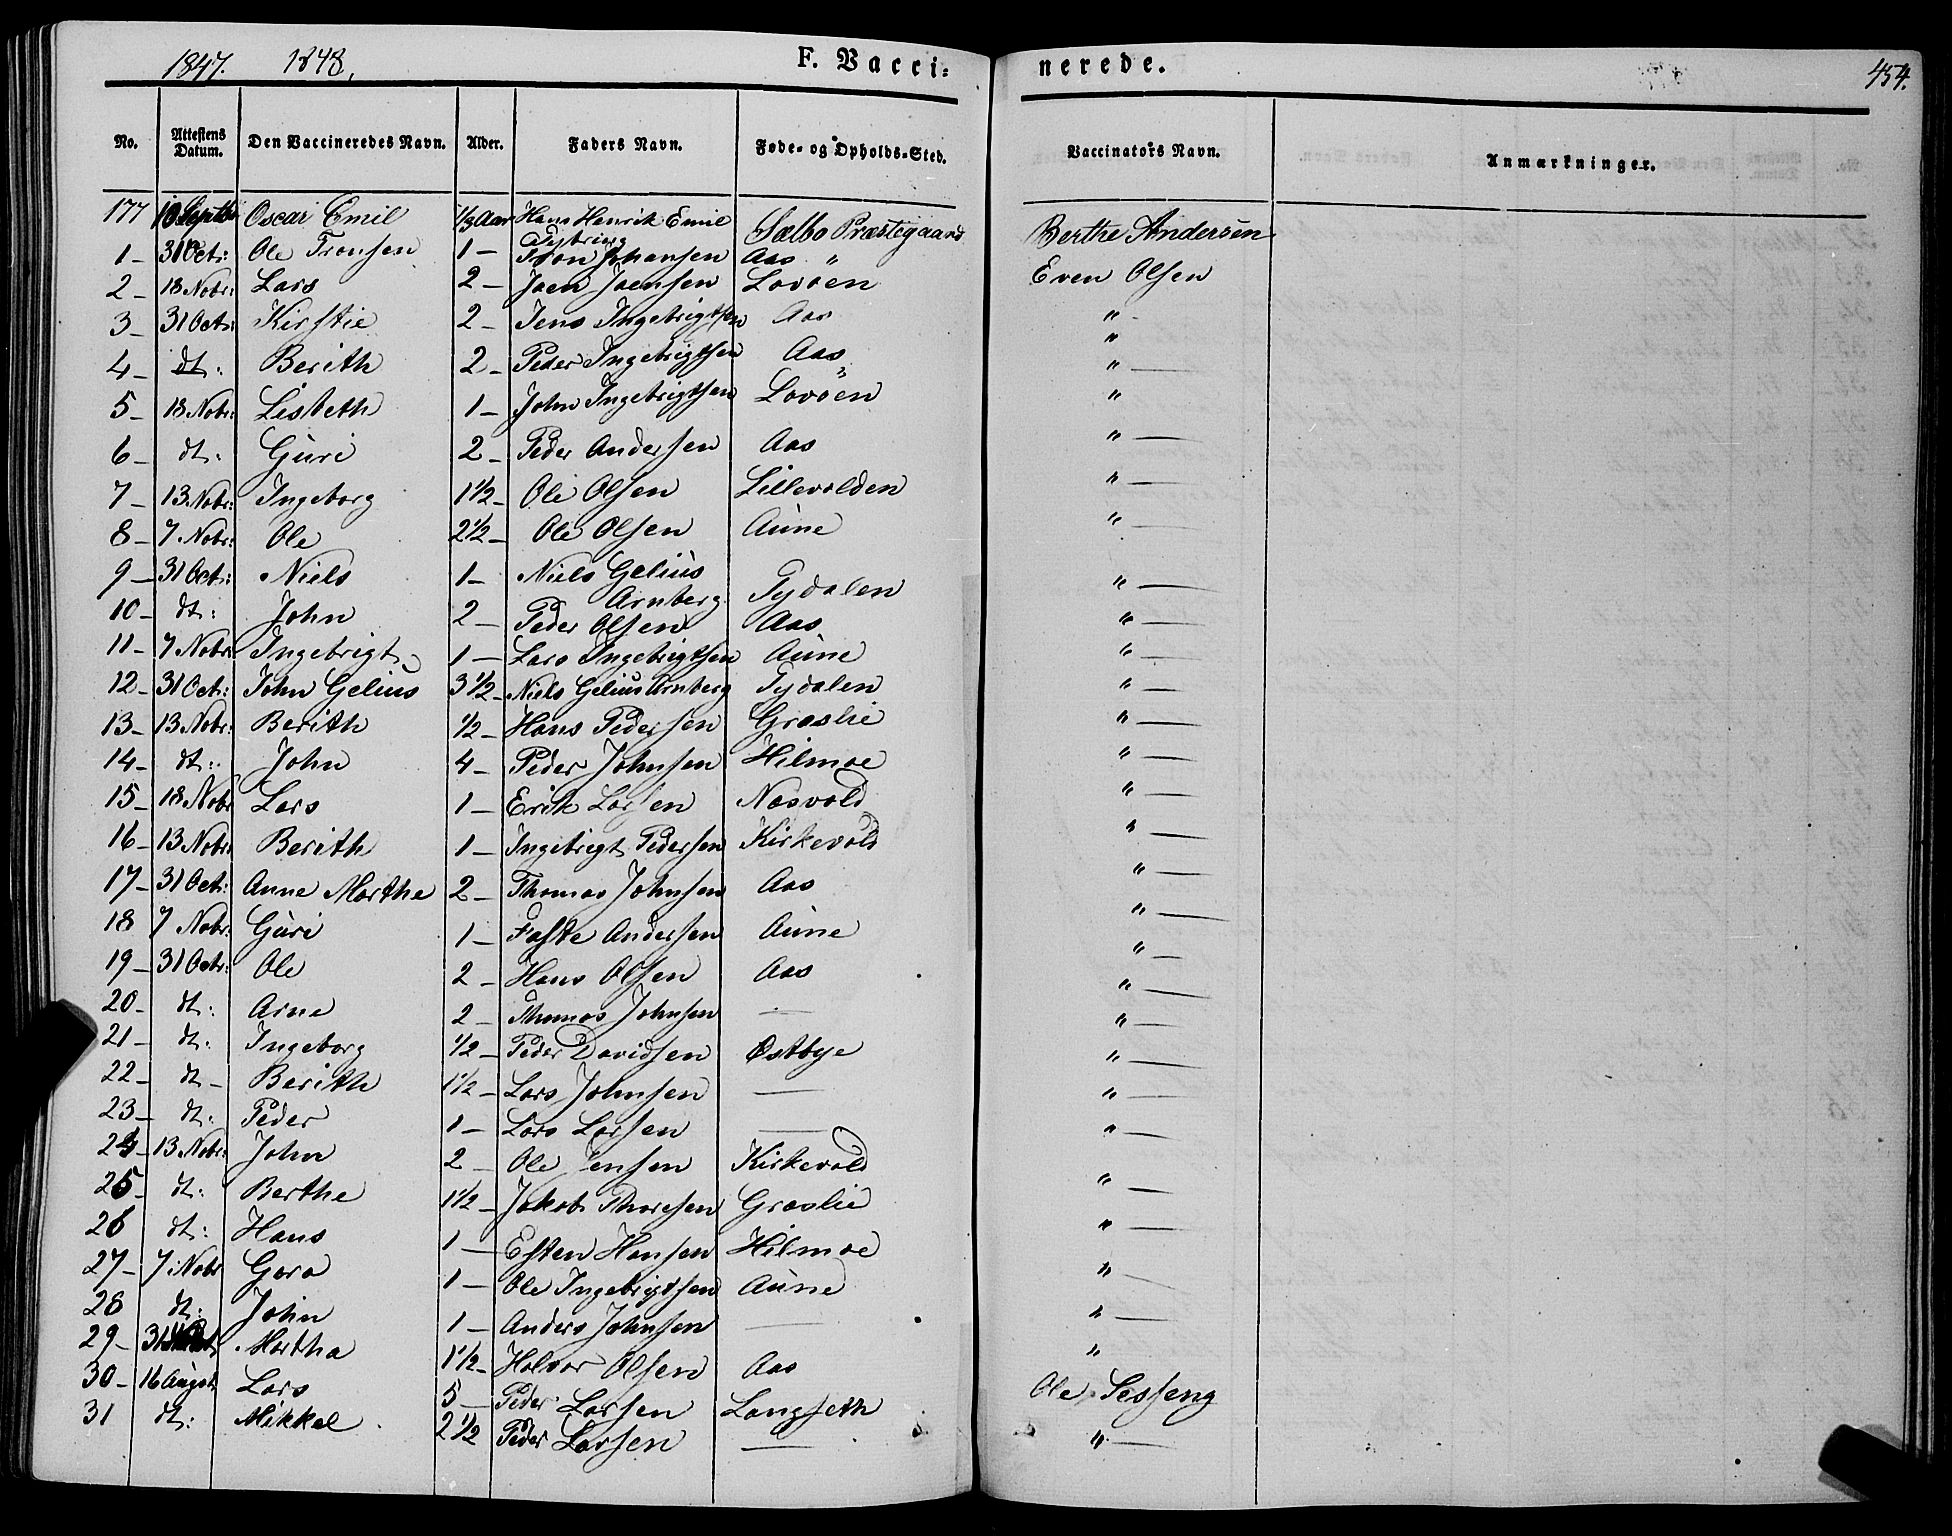 1847. 1848. F. Vacci= nerede. 454.
No. Attestens Datum. Den Vaccineredes Navn. Alder. Faders Navn. Føde- og Opholds-Sted. Vaccinators Navn. Anmærkninger.
177 Oscar Emil 1/3 Aar Hans Henrik Emil Sælbo Præstegaard Berthe Andersen
1- 31 Oct: Ole Tronsen 1- Tron Johansen Aas " Even Olsen
2- 18 Nobr: Lars 2- Joen Joensen Lovøen "
3- 31 Oct: Kirstie 2- Jens Ingebrigtsen Aas "
4- dt: Berith 2- Peder Ingebrigtsen Aas "
5- 18 Nobr: Lisbeth 1- John Ingebrigtsen Lovøen "
6- dt: Guri 2- Peder Andersen Aas "
7- 13 Nobr: Ingeborg 1 1/2- Ole Olsen Lillevolden "
8- 7 Nobr: Ole 2 1/2- Ole Olsen Aune "
9- 31 Oct: Niels 1- Niels Gelius Arnberg Tydalen "
10- dt: John 2- Peder Olsen Aas "
11- 7 Nobr: Ingebrigt 1- Lars Ingebrigtsen Aune "
12- 31 Oct: John Gelius 3 1/2- Niels Gelius Arnberg Tydalen "
13- 13 Nobr: Berith 1/2- Hans Pedersen Græslie "
14- dt: John 4- Peder Johnsen Hilmoe "
15- 18 Nobr Lars 1- Erik Larsen Næsvold "
16- 13 Nobr: Berith 1- Ingebrigt Pedersen Kirkevold "
17- 31 Oct: Anne Marthe 2- Thomas Johnsen Aas "
18 7 Nobr: Guri 1- Faste Andersen Aune "
19- 31 Oct: Ole 2- Hans Olsen Aas "
20- dt: Arne 2- Thomas Johnsen — "
21- dt: Ingeborg 1/2- Peder Davidsen Østbye "
22- dt- Berith 1 1/2- Lars Johnsen — "
23- dt: Peder 1- Lars Larsen — "
24- 13 Nobr: John 2- Ole Jensen Kirkevold "
25- dt: Berthe 1 1/2- Jakob Thoresen Græslie "
26 dt: Hans 1- Esten Hansen Hilmoe "
27- 7 Nobr Gora 1- Ole Ingebrigtsen Aune "
28 dt: John 1- Anders Johnsen — "
29- 31 Martha 1 1/2- Halvor Olsen Aas "
30- 16 August Lars 5- Peder Larsen Langseth Ole Sesseng
31 dt: Mikkel 2 1/2 Peder Larsen — "